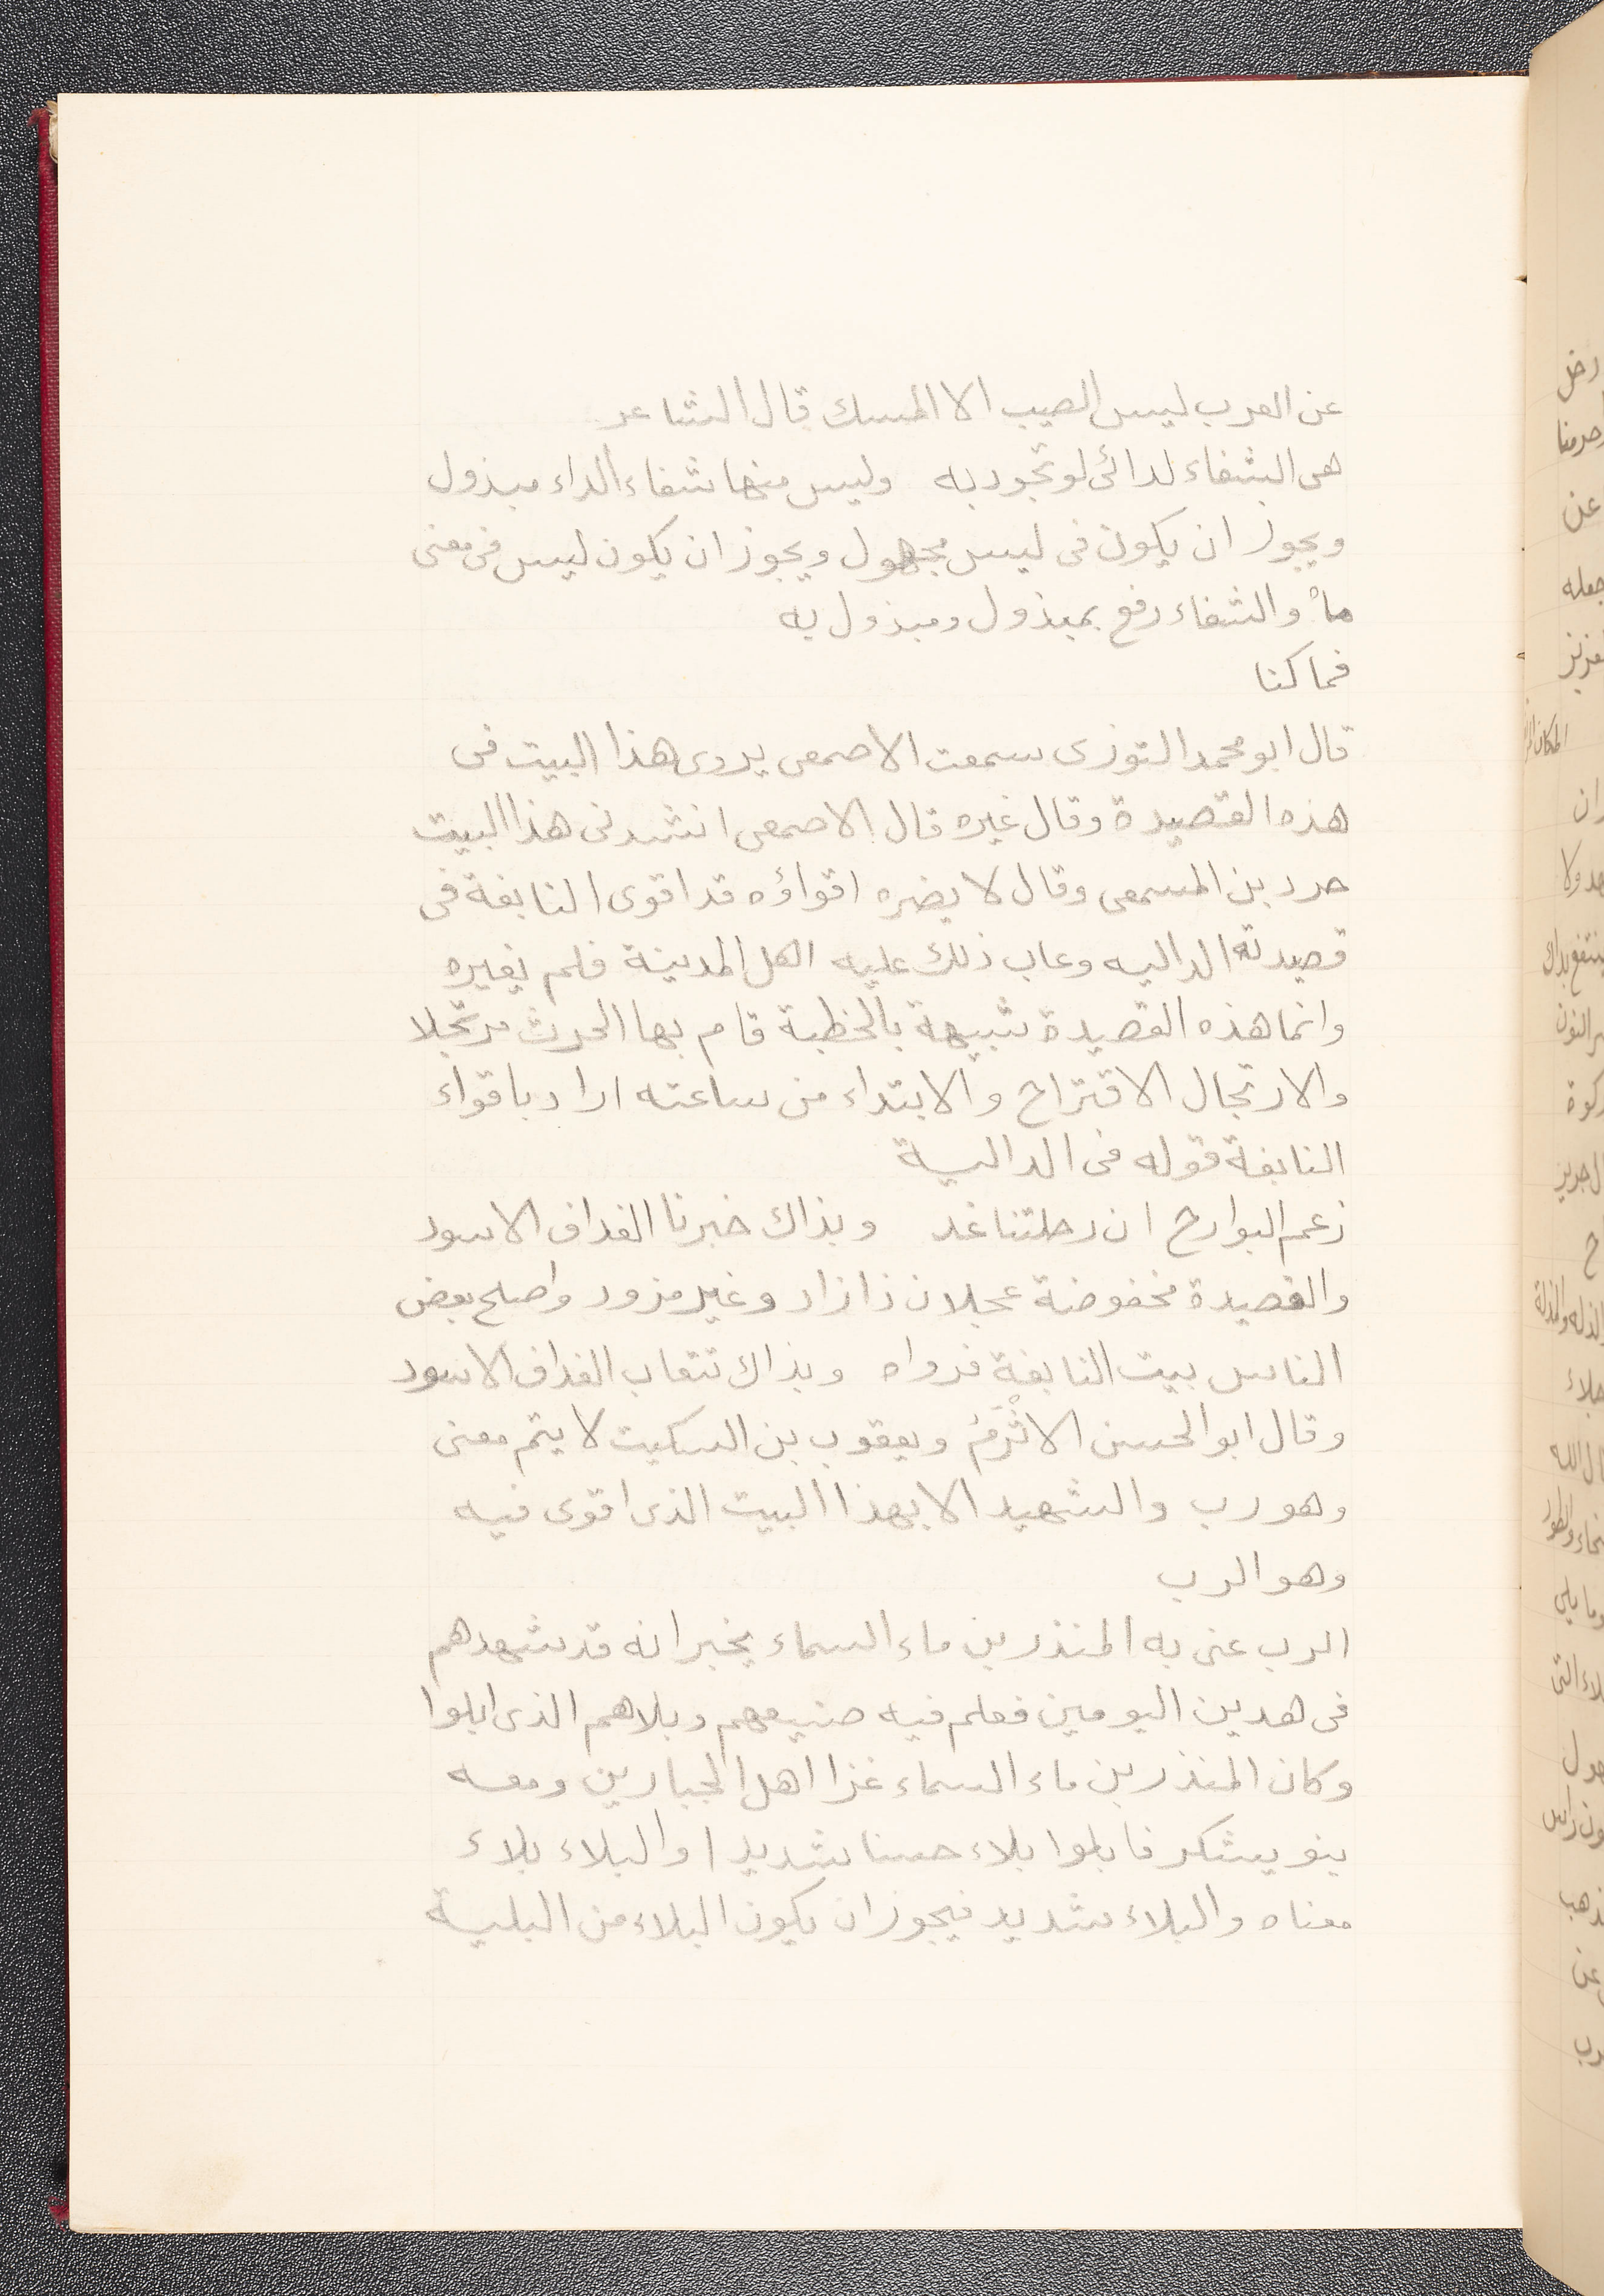 عن العرب ليس الصيب الا المسك قال الشاعر
هى الشفاء لدائى لو تجود به وليس منها شفاء الداء مبذول
ويجوز ان يكون فى ليس مجهول ويجوز ان يكون ليس فى معنى
ما والشفاء رفع بمبذول ومبذول به
فما كنا
قال ابو محمد التوزى سمعت الاصمعى يروى هذا البيت فى
هذه القصيدة وقال غيره قال الاصمعى انشدنى هذا البيت
حرد بن المسمعى وقال لا يضره اقواؤه قد اقوى النابغة فى
قصيدته الداليه وعاب ذلك عليه اهل المدينة فلم يغيره
وانما هذه القصيدة شبيهة بالخطبة قام بها الحرث مرتجلا
والارتجال الاقتراح والابتداء من ساعته اراد باقواء
النابغة قوله فى الدالية
زعم البوارح ان رحلتنا غد وبذاك خبرنا الغداف الاسود
والقصيدة مخفوضة عجلان ذا زاد وغير مزود واصلح بعض
الناس بيت النابغة فرواه وبذاك تنعاب الغداف الاسود
وقال ابو الحسن الاثْرَمُ ويعقوب بن السكيت لا يتم معنى
وهو رب والشهيد الا بهذا البيت الذى اقوى فيه
وهو الرب
الرب عنى به المنذر بن ماء السماء يخبر انه قد شهدهم
فى هدين اليومين فعلم فيه صنيعهم وبلاهم الذى ابلوا
وكان المنذر بن ماء السماء غزا اهل الحبارين ومعه
بنو يشكر فابلوا بلاء حسنا شديدا والبلاء بلاء
معناه والبلاء شديد فيجوز ان يكون البلاء من البلية